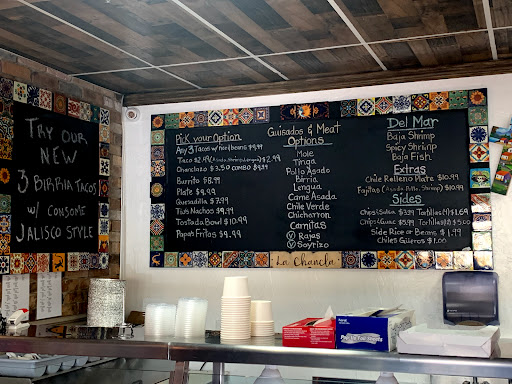 TRY OUR
NEW
3 BIRRIA TACOS
W/ CONSOME
JALISCO STYLE
Pick your Option
Any 3 Tacos w/
Taco $2.49 $2.99
Chanclazo $3.50 combo
Burrito $8.99
Plate $9.99
Quesadilla $7.99
Tio's Nachos $9.99
Tostada Bowl $10.99
Papa's Fritas $9.99
Guisados & Meat
Options
Mole
Tinga
Pollo Asado
Birria
Lengua
Carne Asada
Chile Verde
Chicharron
Carnitas
Rajas
Soyrizo
Del Mar
Baja Shrimp
Spicy Shrimp
Baja Fish
Extras
Chile Relleno Plate $10.99
Fajitas (Asada, Pollo, Shrimp) $10.99
Sides
Chips & Salsa $3.99 Tortillas (4) $1.69
Chips & Guac $5.99 Tortillas
Side Rice or Beans $1.99
Chiles Güeros $1.00
La Chancla